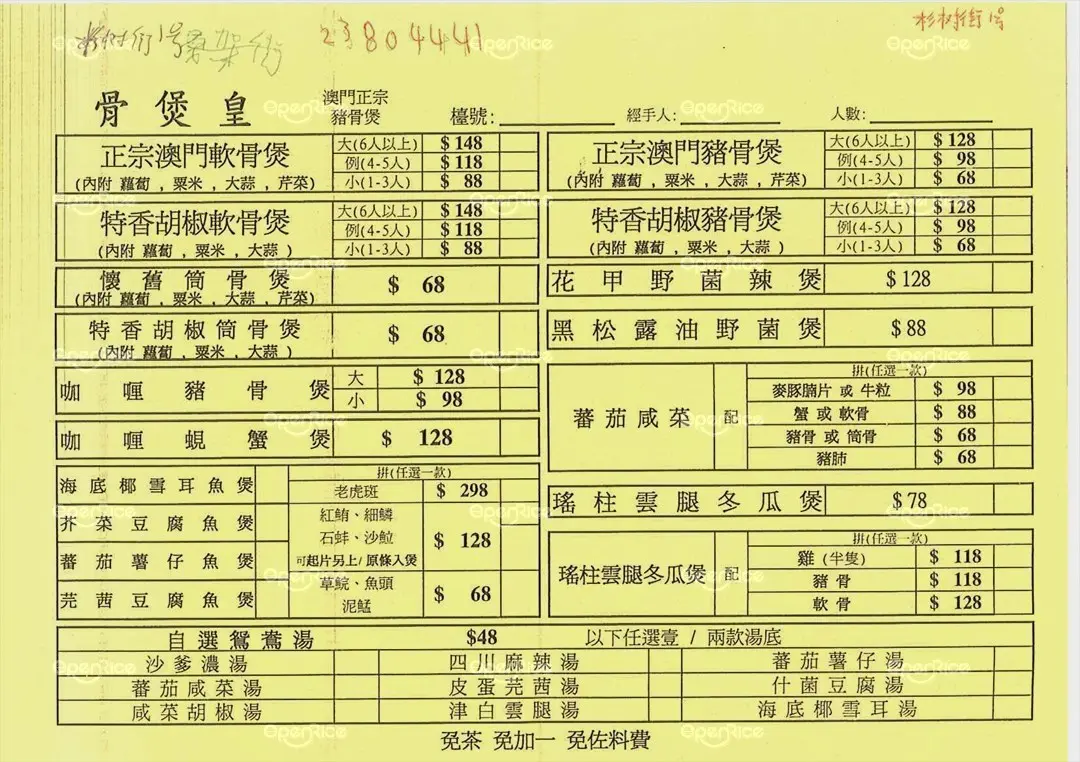 杉树街1号
23804441
杉树街1号
骨煲皇
澳門正宗
豬骨煲
檯號:
經手人:
人數:
正宗澳門軟骨煲
(內附 蘿蔔 , 粟米 , 大蒜 , 芹菜)
大(6人以上) $ 148
例(4-5人) $ 118
小(1-3人) $ 88
特香胡椒軟骨煲
(內附 蘿蔔 , 粟米 , 大蒜 )
大(6人以上) $ 148
例(4-5人) $ 118
小(1-3人) $ 88
懷舊筒骨煲 $ 68
(內附 蘿蔔 , 粟米 , 大蒜 , 芹菜)
特香胡椒筒骨煲 $ 68
(內附 蘿蔔 , 粟米 , 大蒜 )
咖喱豬骨煲
大 $ 128
小 $ 98
咖喱蜆蟹煲 $ 128
海底椰雪耳魚煲
芥菜豆腐魚煲
蕃茄薯仔魚煲
芫茜豆腐魚煲
拼(任選一款)
老虎斑 $ 298
紅鮋、細鱗
石蚌、沙𩶘
可起片另上/ 原條入煲
$ 128
草鯇、魚頭
泥鯭
$ 68
正宗澳門豬骨煲
(內附 蘿蔔 , 粟米 , 大蒜 , 芹菜)
大(6人以上) $ 128
例(4-5人) $ 98
小(1-3人) $ 68
特香胡椒豬骨煲
(內附 蘿蔔 , 粟米 , 大蒜 )
大(6人以上) $ 128
例(4-5人) $ 98
小(1-3人) $ 68
花甲野菌辣煲 $128
黑松露油野菌煲 $88
蕃茄咸菜 配
拼(任選一款)
麥豚腩片 或 牛粒 $ 98
蟹 或 軟骨 $ 88
豬骨 或 筒骨 $ 68
豬肺 $ 68
瑤柱雲腿冬瓜煲 $78
瑤柱雲腿冬瓜煲 配
拼(任選一款)
雞 (半隻) $ 118
豬骨 $ 118
軟骨 $ 128
自選鴛鴦湯 $48 以下任選壹 / 兩款湯底
沙爹濃湯 四川麻辣湯 蕃茄薯仔湯
蕃茄咸菜湯 皮蛋芫茜湯 什菌豆腐湯
咸菜胡椒湯 津白雲腿湯 海底椰雪耳湯
免茶 免加一 免佐料費
OpenRice